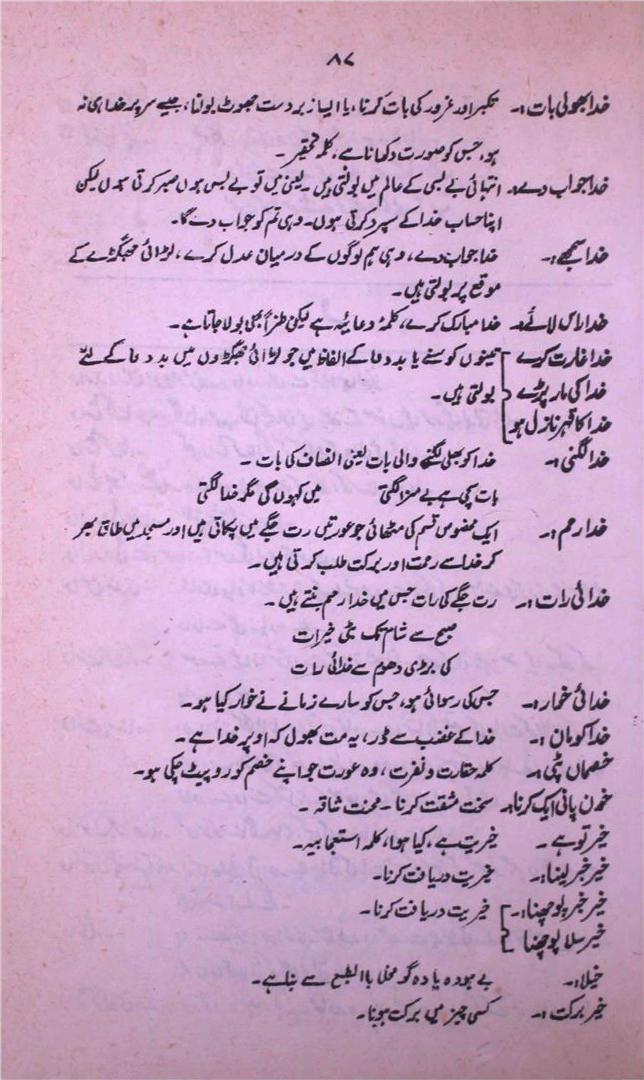 ۸۷
خدا بھولی بات :۔ تکبر اور غرور کی بات کرنا، یا ایسا زبردست جھوٹ بولنا، جیسے سر پر خدا ہی نہ
ہو، جس کو صورت دکھانا ہے، کلمۂ تحقیر۔
خدا جواب دے۔ انتہائی بے بسی کے عالم میں بولتی ہیں۔ یعنی میں تو بے بس ہوں صبر کرتی ہوں لیکن
اپنا حساب خدا کے سپرد کرتی ہوں۔ وہی تم کو جواب دے گا۔
خدا سمجھے :۔ خدا جواب دے، وہی ہم لوگوں کے درمیان عدل کرے، لڑائی جھگڑے کے
موقع پر بولتی ہیں۔
خدا راس لائے :۔ خدا مبارک کرے، کلمۂ دعائیہ ہے لیکن طنزاً بھی بولا جاتا ہے۔
خدا غارت کرے تینوں کوسنے یا بددعا کے الفاظ ہیں جو لڑائی جھگڑوں میں بددعا کے لئے
خدا کی مار پڑے بولتی ہیں۔
خدا کا قہر نازل ہو
خدا لگتی :۔ خدا کو بھلی لگنے والی بات یعنی انصاف کی بات۔
بات سچی ہے بے مزا لگتی میں کہوں گی مگر خدا لگتی
خدا رحم :۔ ایک مخصوص قسم کی مٹھائی جو عورتیں رت جگے میں پکاتی ہیں اور مسجد میں طاق بھر
کر خدا سے رحمت اور برکت طلب کرتی ہیں۔
خدائی رات :۔ رت جگے کی رات جس میں خدا رحم بنتے ہیں۔
صبح سے شام تک بٹی خیرات
کی بڑی دھوم سے خدائی رات
خدائی خوار :۔ جس کی رسوائی ہو، جس کو سارے زمانے نے خوار کیا ہو۔
خدا کو مان :۔ خدا کے غضب سے ڈر، یہ مت بھول کہ اوپر خدا ہے۔
خصماں پٹی :۔ کلمہ حقارت و نفرت، وہ عورت جو اپنے خصم کو رو پیٹ چکی ہو۔
خون پانی ایک کرنا :۔ سخت مشقت کرنا۔ محنت شاقہ۔
خیر تو ہے ۔ خیریت ہے، کیا ہوا، کلمہ استعجابیہ۔
خیر خبر لینا :۔ خیریت دریافت کرنا۔
خیر خبر پوچھنا :۔ خیریت دریافت کرنا۔
خیر سلا پوچھنا
خیلا :۔ بے ہودہ یا دہ گو مخلا باالطبع سے بنا ہے۔
خیر برکت :۔ کسی چیز میں برکت ہونا۔